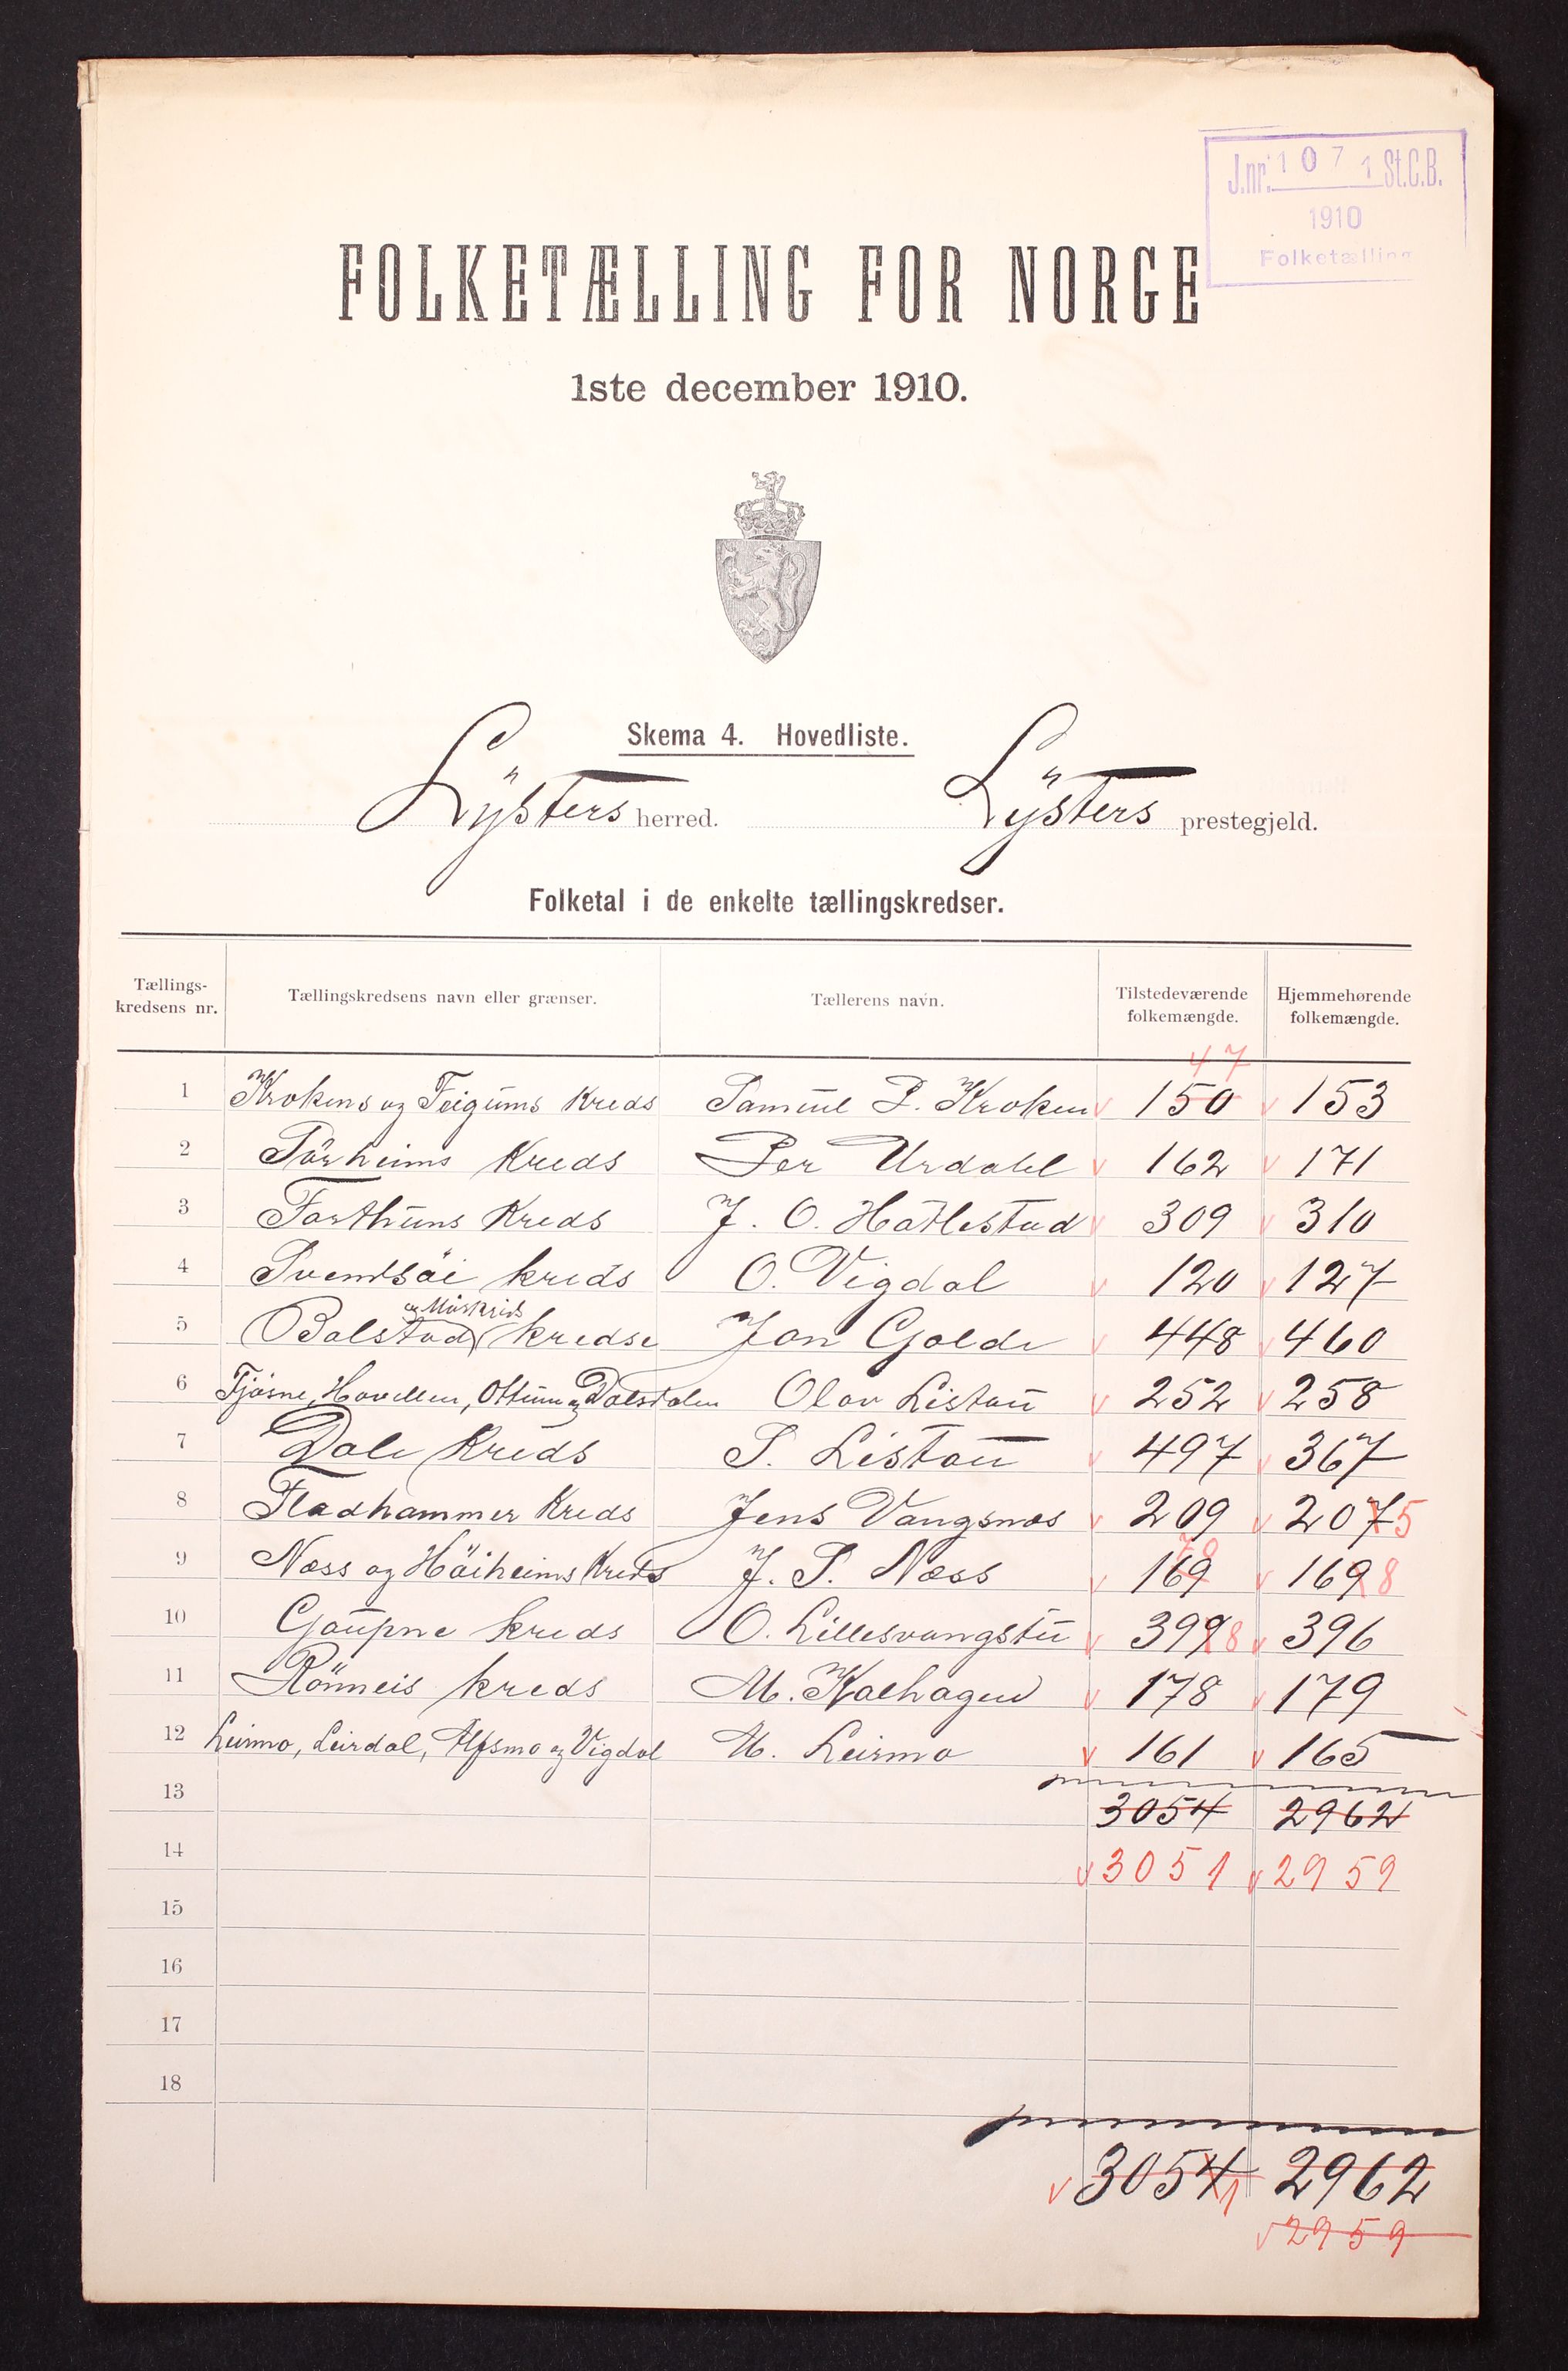 J.nr. 1071 St.C.B.
1910
Folketælling
FOLKETÆLLING FOR NORGE
1ste december 1910.
Skema 4. Hovedliste.
Lÿsters herred. Lÿsters prestegjeld.
Folketal i de enkelte tællingskredser.
Tællings-kredsens nr. Tællingskredsens navn eller grænser. Tællerens navn. Tilstedeværende folkemængde. Hjemmehørende folkemængde.
47
1 Krokens og Feigums Kreds Samuel P. Kroken 150 153
2 Sørheims Kreds Per Urdahl 162 171
3 Forthuns Kreds J. O. Hatlestad 309 310
4 Svendsøi kreds O. Vigdal 120 127
og Mørkrids
5 Bolstad kredse Jon Golde 448 460
6 Fjøsne, Havellen, Ottum og Dalsdalen Olav Listou 252 258
7 Dale Kreds S. Listou 497 367
8 Fladhammer Kreds Jens Vangsnes 209 207 5
70
9 Næss og Høiheims Kreds J. S. Næss 169 169 8
10 Gaupne kreds O. Lillesvangstu 399 8 396
11 Rønneis kreds M. Kalhagen 178 179
12 Leirmo, Leirdal, Alfsmo og Vigdal M. Leirmo 161 165
13 3054 2962
14 3051 2959
15
16
17
18
3054 1 2962
2959